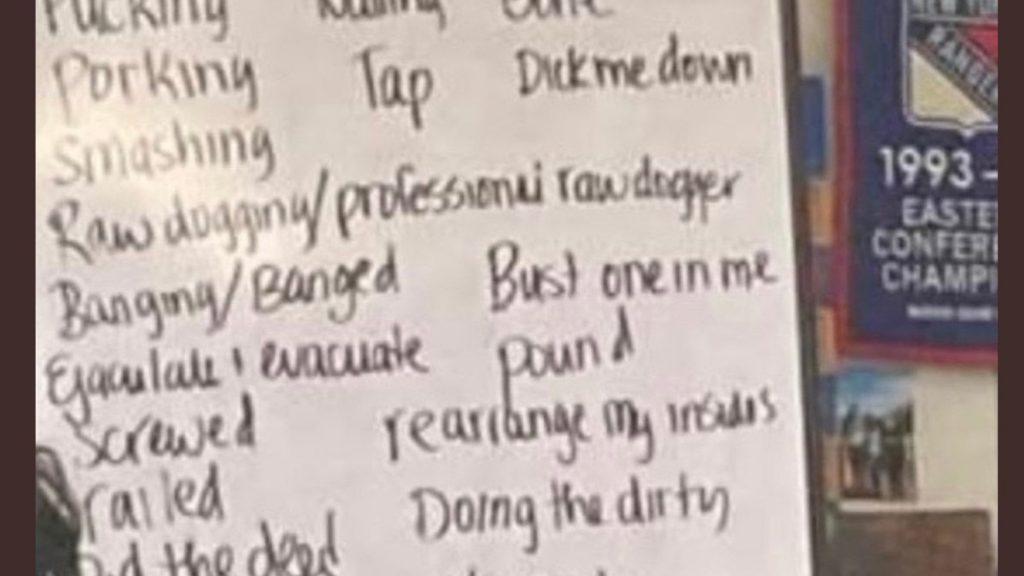 Fucking
Porking Tap Dick me down
Smashing
Raw dogging/professional raw dogger
Banging/Banged Bust one in me
Ejaculate & evacuate pound
Screwed rearrange my insides
railed Doing the dirty
the deed
NEW YOR
RANGE
1993 -
EASTE
CONFER
CHAMPI